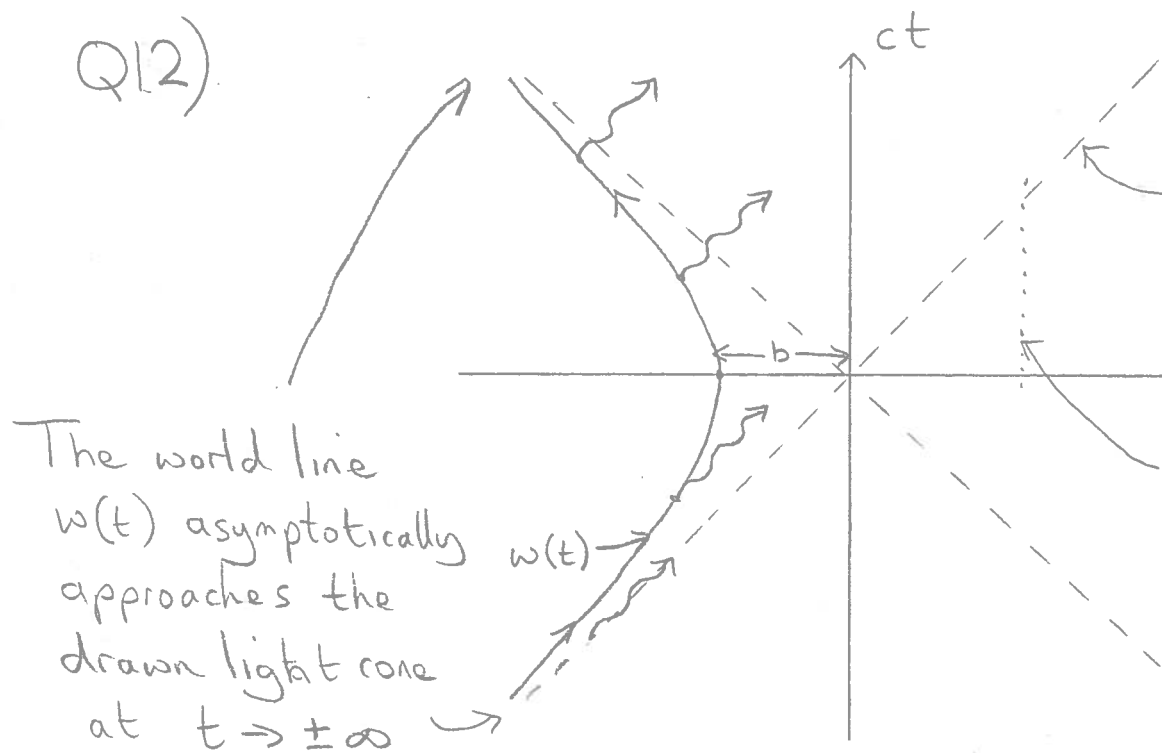 Q12)
ct
b
The world line
w(t) asymptotically
approaches the
drawn light cone
at t → ± ∞
w(t)